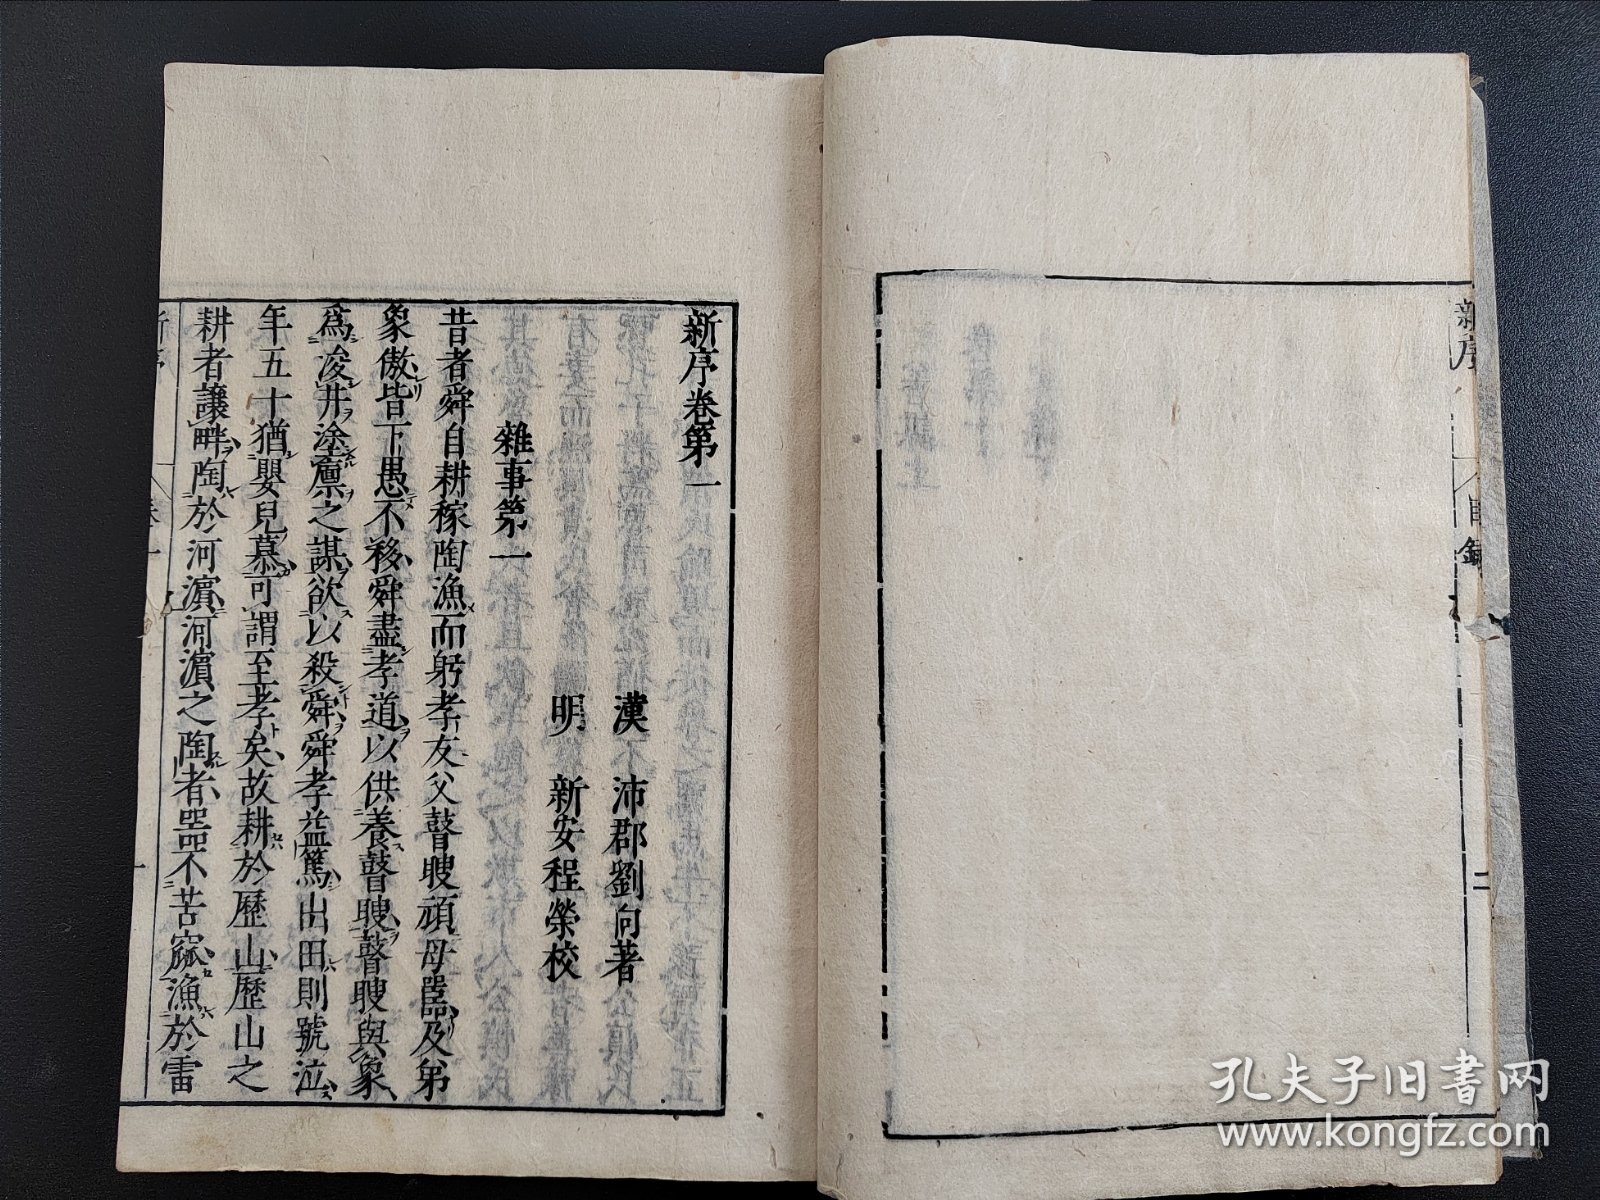 新序
目錄
二
新序卷第一
漢　沛郡劉向著
明　新安程榮校
雜事第一
昔者舜自耕稼陶漁而躬孝友父瞽瞍頑母嚚及弟
象傲皆下愚不移舜盡孝道以供養瞽瞍瞽瞍與象
爲浚井塗廩之謀欲以殺舜舜孝益篤出田則號泣
年五十猶嬰兒慕可謂至孝矣故耕於歷山歷山之
耕者讓畔陶於河濵河濵之陶者器不苦窳漁於雷
新序
卷一
一
孔夫子旧书网
www.kongfz.com